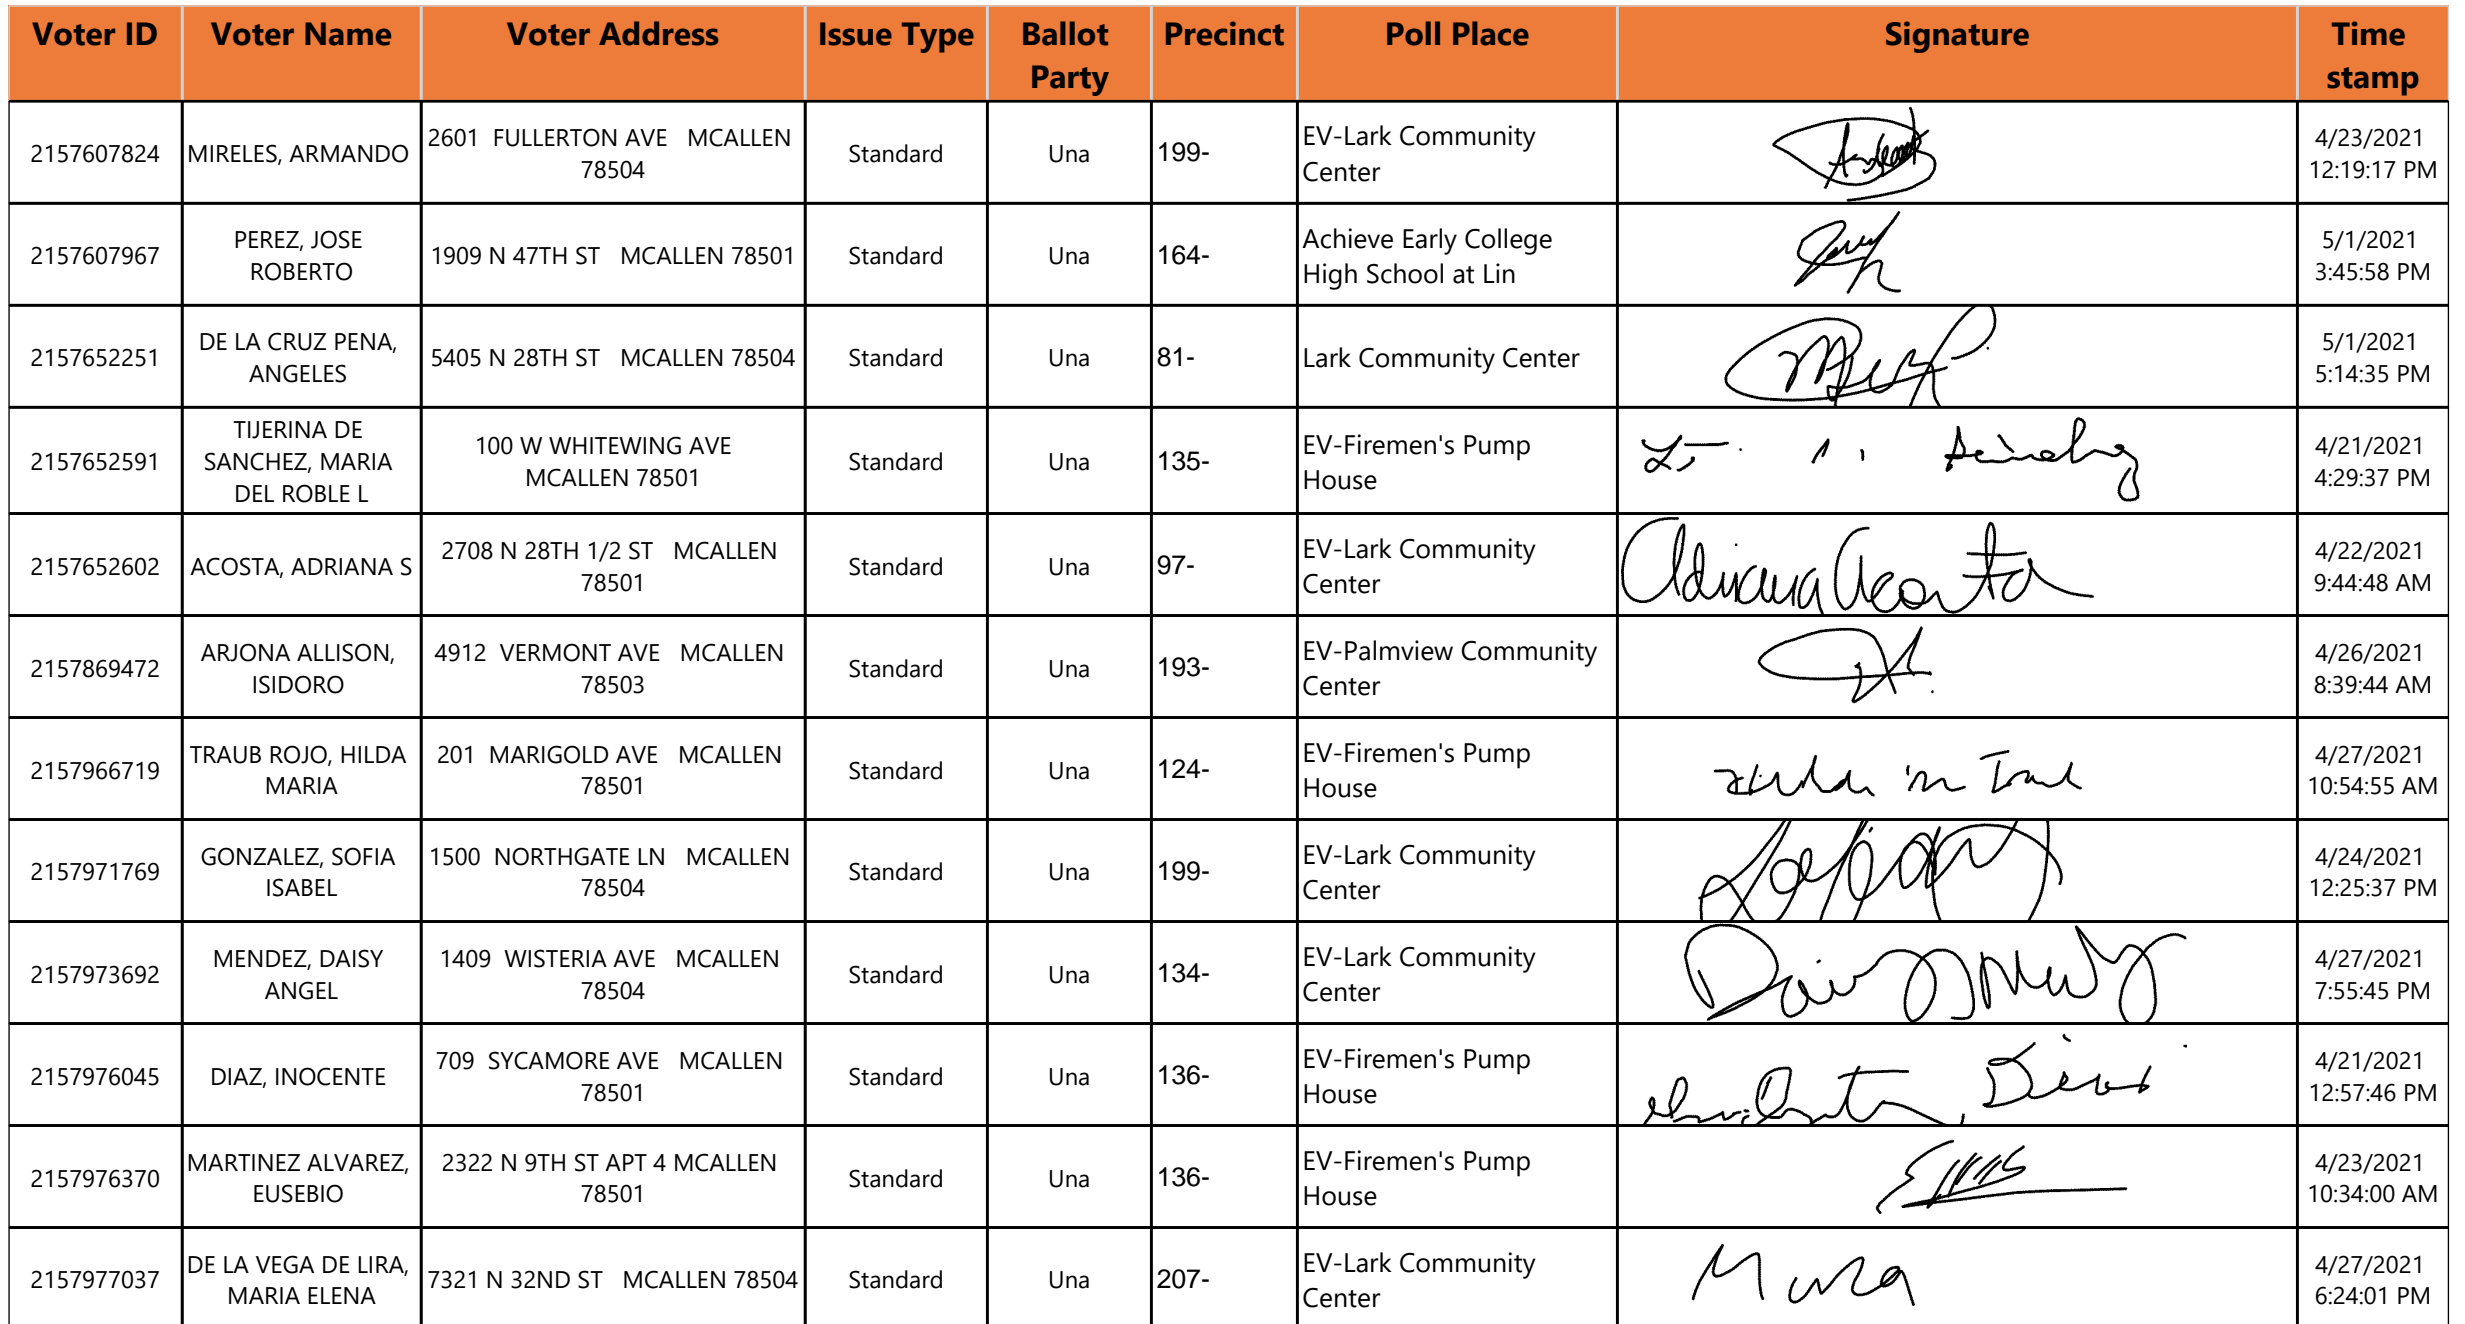 Voter ID Voter Name Voter Address Issue Type Ballot Party Precinct Poll Place Signature Time stamp
2157607824 MIRELES, ARMANDO 2601 FULLERTON AVE MCALLEN 78504 Standard Una 199- EV-Lark Community Center 4/23/2021 12:19:17 PM
2157607967 PEREZ, JOSE ROBERTO 1909 N 47TH ST MCALLEN 78501 Standard Una 164- Achieve Early College High School at Lin 5/1/2021 3:45:58 PM
2157652251 DE LA CRUZ PENA, ANGELES 5405 N 28TH ST MCALLEN 78504 Standard Una 81- Lark Community Center 5/1/2021 5:14:35 PM
2157652591 TIJERINA DE SANCHEZ, MARIA DEL ROBLE L 100 W WHITEWING AVE MCALLEN 78501 Standard Una 135- EV-Firemen's Pump House 4/21/2021 4:29:37 PM
2157652602 ACOSTA, ADRIANA S 2708 N 28TH 1/2 ST MCALLEN 78501 Standard Una 97- EV-Lark Community Center Adriana Acosta 4/22/2021 9:44:48 AM
2157869472 ARJONA ALLISON, ISIDORO 4912 VERMONT AVE MCALLEN 78503 Standard Una 193- EV-Palmview Community Center 4/26/2021 8:39:44 AM
2157966719 TRAUB ROJO, HILDA MARIA 201 MARIGOLD AVE MCALLEN 78501 Standard Una 124- EV-Firemen's Pump House Hilda m Traub 4/27/2021 10:54:55 AM
2157971769 GONZALEZ, SOFIA ISABEL 1500 NORTHGATE LN MCALLEN 78504 Standard Una 199- EV-Lark Community Center 4/24/2021 12:25:37 PM
2157973692 MENDEZ, DAISY ANGEL 1409 WISTERIA AVE MCALLEN 78504 Standard Una 134- EV-Lark Community Center Daisy Mendez 4/27/2021 7:55:45 PM
2157976045 DIAZ, INOCENTE 709 SYCAMORE AVE MCALLEN 78501 Standard Una 136- EV-Firemen's Pump House 4/21/2021 12:57:46 PM
2157976370 MARTINEZ ALVAREZ, EUSEBIO 2322 N 9TH ST APT 4 MCALLEN 78501 Standard Una 136- EV-Firemen's Pump House 4/23/2021 10:34:00 AM
2157977037 DE LA VEGA DE LIRA, MARIA ELENA 7321 N 32ND ST MCALLEN 78504 Standard Una 207- EV-Lark Community Center 4/27/2021 6:24:01 PM